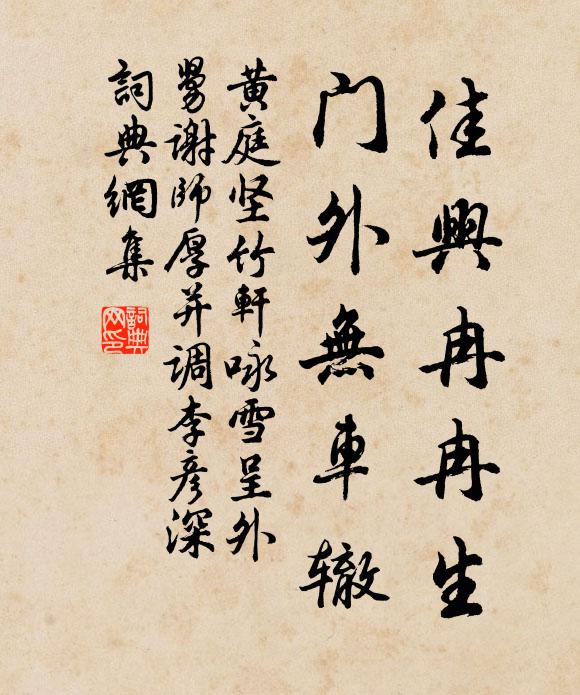 佳興冉冉生
门外無車辙
黄庭坚竹軒咏雪呈外
舅谢師厚并調李彦深
詞典網集
詞典网印